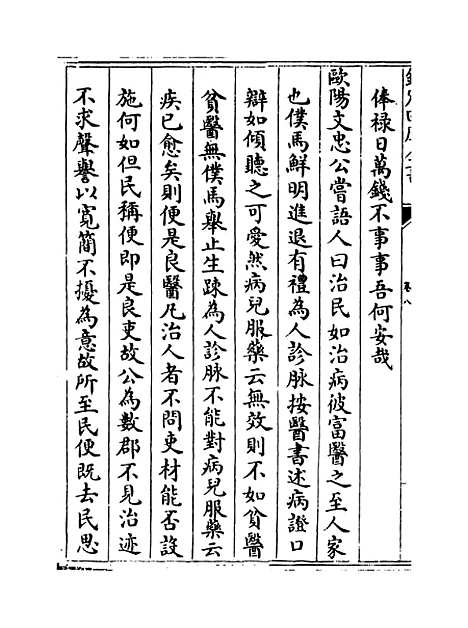 俸禄日萬錢不事事吾何安哉
歐陽文忠公嘗語人曰治民如治病彼富醫之至人家
也僕馬鮮明進退有禮為人診脉按醫書述病證口
辯如傾聽之可愛然病兒服藥云無效則不如貧醫
貧醫無僕馬舉止生踈為人診脉不能對病兒服藥云
疾已愈矣則便是良醫凡治人者不問吏材能否設
施何如但民稱便即是良吏故公為數郡不見治迹
不求聲譽以寛簡不擾為意故所至民便既去民思